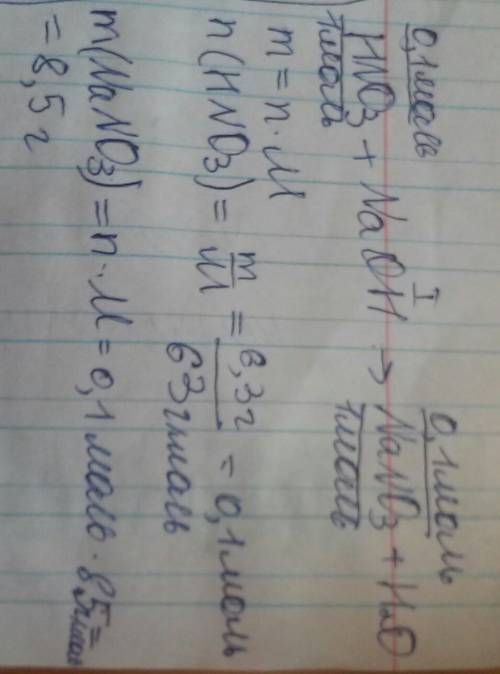 0,1моль 0,1моль
HNO3 + NaOH → NaNO3 + H2O
1моль I 1моль
m = n · M
n(HNO3) = m/M = 6,3г/63г/моль = 0,1моль
m(NaNO3) = n · M = 0,1моль · 85г/моль =
= 8,5г